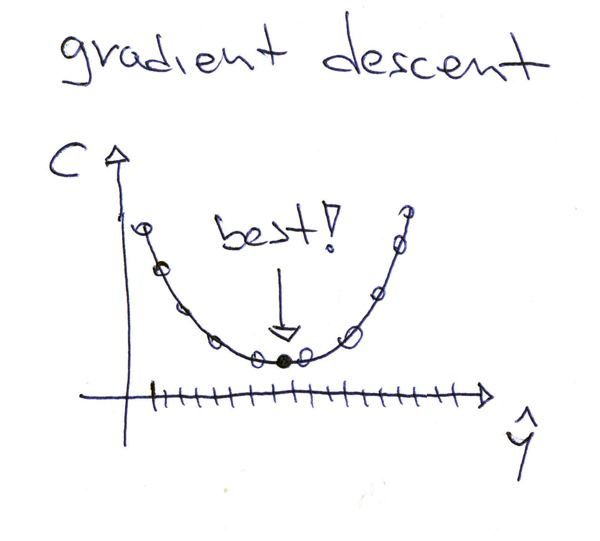 gradient descent
C
best!
ŷ